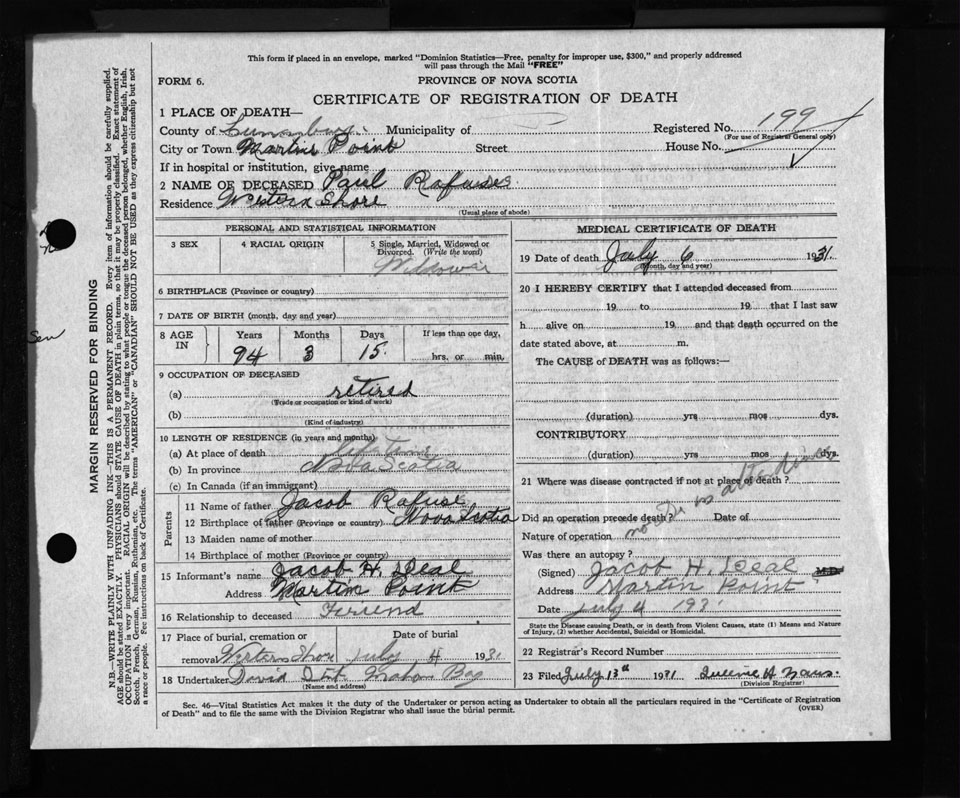 This form if placed in an envelope, marked "Dominion Statistics—Free, penalty for improper use, $300," and properly addressed
will pass through the Mail "FREE"
FORM 6.
PROVINCE OF NOVA SCOTIA
CERTIFICATE OF REGISTRATION OF DEATH
1 PLACE OF DEATH—
County of Lunenburg Municipality of Registered No. 199
(For use of Registrar General only)
City or Town Martins Point Street House No.
If in hospital or institution, give name
2 NAME OF DECEASED Paul Rafuse
Residence Western Shore
(Usual place of abode)
PERSONAL AND STATISTICAL INFORMATION
3 SEX
4 RACIAL ORIGIN
5 Single, Married, Widowed or
Divorced. (Write the word)
Widower
6 BIRTHPLACE (Province or country)
7 DATE OF BIRTH (month, day and year)
8 AGE IN
Years Months Days If less than one day,
94 3 15 hrs. or min.
9 OCCUPATION OF DECEASED
(a) retired
(Trade or occupation or kind of work)
(b)
(Kind of industry)
10 LENGTH OF RESIDENCE (in years and months)
(a) At place of death Time
(b) In province Nova Scotia
(c) In Canada (if an immigrant)
Parents
11 Name of father Jacob Rafuse
12 Birthplace of father (Province or country) Nova Scotia
13 Maiden name of mother
14 Birthplace of mother (Province or country)
15 Informant's name Jacob H. Deal
Address Martin Point
16 Relationship to deceased Friend
17 Place of burial, cremation or
removal Western Shore
Date of burial
July 4 1931
18 Undertaker David Mahon Bay
(Name and address)
MEDICAL CERTIFICATE OF DEATH
19 Date of death July 6 1931
(Month, day and year)
20 I HEREBY CERTIFY that I attended deceased from
19 to 19 that I last saw
h alive on 19 and that death occurred on the
date stated above, at m.
The CAUSE of DEATH was as follows:—
(duration) yrs mos dys.
CONTRIBUTORY
(duration) yrs mos dys.
21 Where was disease contracted if not at place of death?
Did an operation precede death? Date of
Nature of operation no Dr in attendance
Was there an autopsy?
(Signed) Jacob H. Deal M.D.
Address Martin Point
Date July 4 1931
State the Disease causing Death, or in death from Violent Causes, state (1) Means and Nature
of Injury, (2) whether Accidental, Suicidal or Homicidal.
22 Registrar's Record Number
23 Filed July 13th 1931
(Division Registrar)
Sec. 46—Vital Statistics Act makes it the duty of the Undertaker or person acting as Undertaker to obtain all the particulars required in the "Certificate of Registration
of Death" and to file the same with the Division Registrar who shall issue the burial permit.
(OVER)
MARGIN RESERVED FOR BINDING
N.B.—WRITE PLAINLY WITH UNFADING INK—THIS IS A PERMANENT RECORD. Every item of information should be carefully supplied.
AGE should be stated EXACTLY. PHYSICIANS should STATE CAUSE OF DEATH in plain terms, so that it may be properly classified. Exact statement of
OCCUPATION is very important. RACIAL ORIGIN will be described by stating to what people or tongue the deceased person belonged, whether English, Irish,
Scotch, French, German, Russian, Ruthenian, etc. The terms "AMERICAN" or "CANADIAN" SHOULD NOT BE USED as they express citizenship but not
a race or people. Fee instructions on back of Certificate.